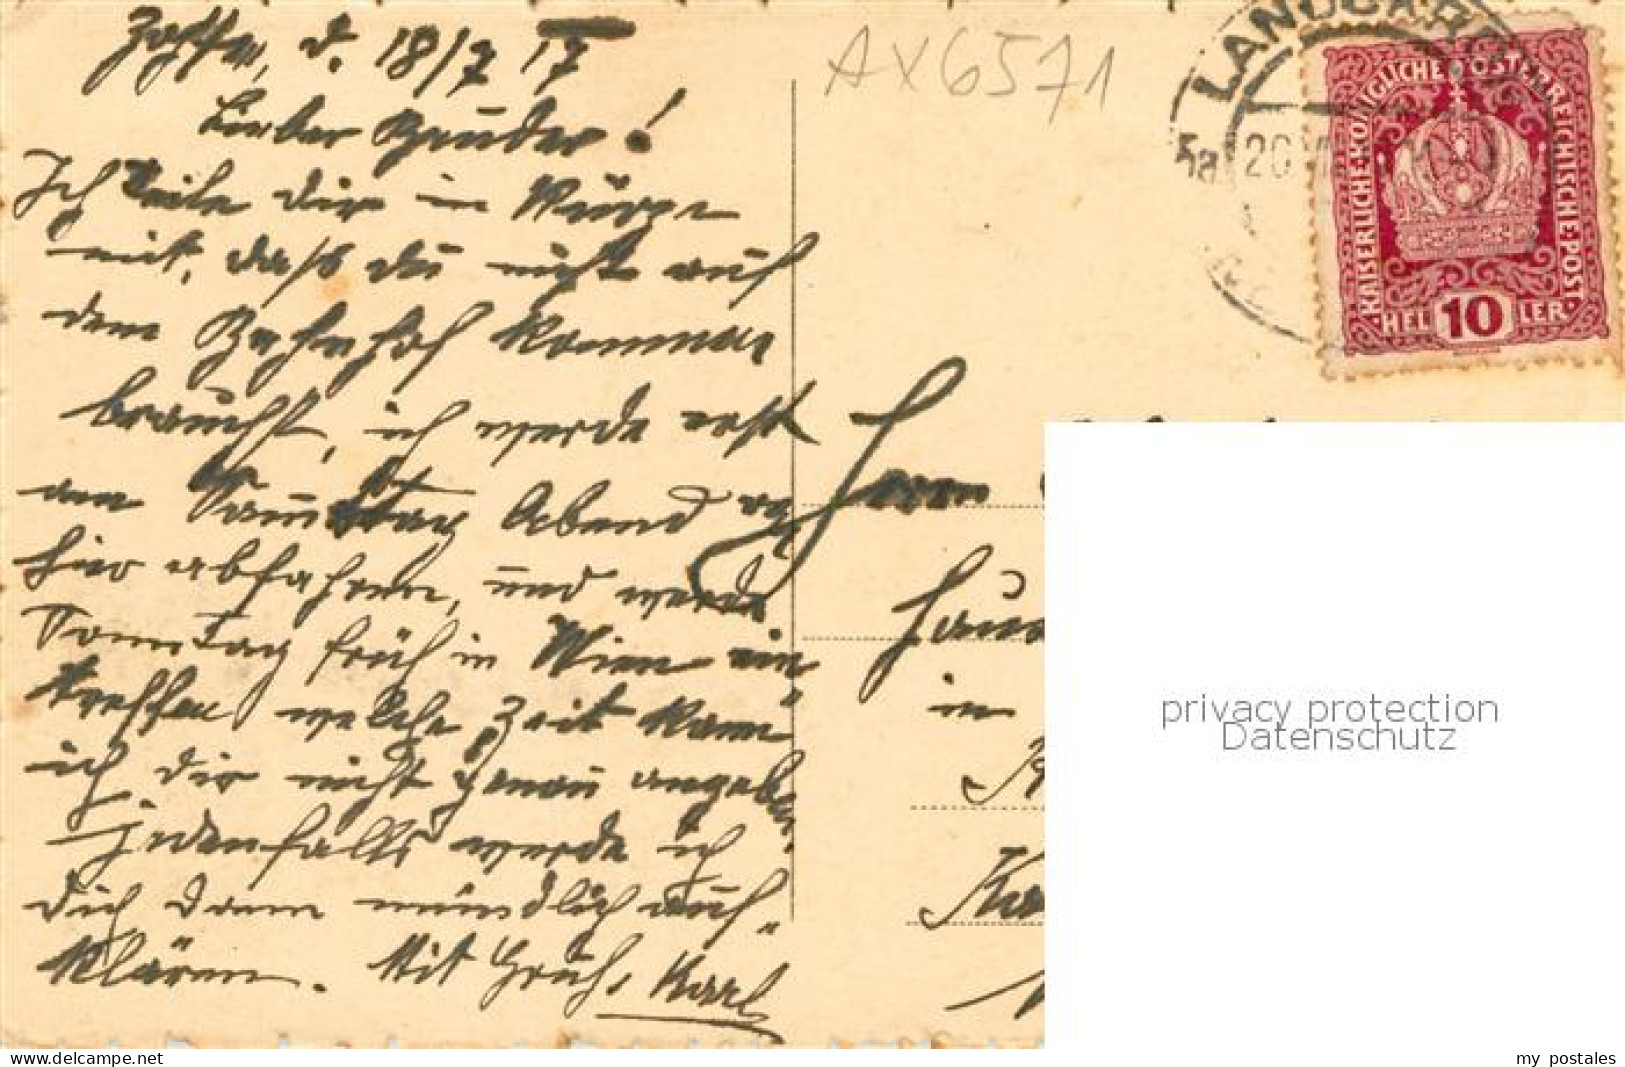 d. 18/7 17
Lieber Bruder!
Ich teile dir in Kürze
mit, dass du nicht auf
dem Bahnhof kommen
brauchst, ich werde erst
am Samstag Abend
hier abfahren, und werde
Sonntag früh in Wien ein
treffen welche Zeit kann
ich dir nicht genau angeben,
jedenfalls werde ich
dich dann mündlich auf-
klären. Mit Gruß, Karl
AX6571
LANDECK
5a 20
KAISERLICHE·KÖNIGLICHE ÖSTERREICHISCHE·POST·
·HELLER·
10
Herrn
in
privacy protection
Datenschutz
www.delcampe.net
my postales